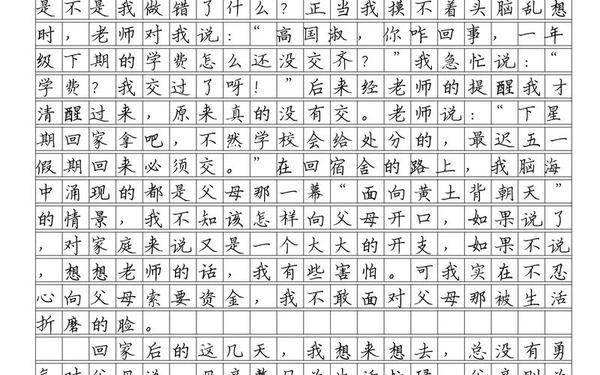 是不是我做错了什么？正当我摸不着头脑乱想
时，老师对我说：“高国淑，你咋回事，一年
级下期的学费怎么还没交齐？”我急忙说：“
学费？我交过了呀！”后来经老师的提醒我才
清醒过来，原来真的没有交。老师说：“下星
期回家拿吧，不然学校会给处分的，最迟五一
假期回来必须交。”在回宿舍的路上，我脑海
中涌现的都是父母那一幕“面向黄土背朝天”
的情景，我不知该怎样向父母开口，如果说了
，对家庭来说又是一个大大的开支，如果不说
，想想老师的话，我有些害怕。可我实在不忍
心向父母索要资金，我不敢面对父母那被生活
折磨的脸。
回家后的这几天，我想来想去，总没有勇